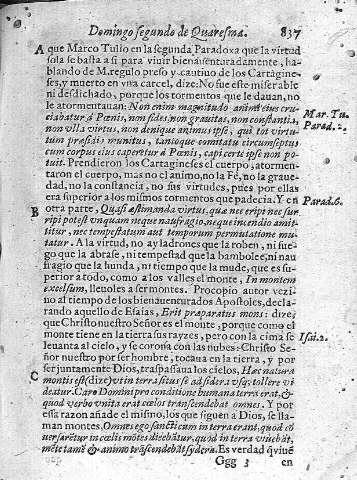 Domingo segundo de Quaresma. 837
A que Marco Tulio en la segunda Paradoxa que la virtud
sola se basta a si para viuir bienauenturadamente, ha-
blando de M. regulo preso y cautiuo de los Cartagine-
ses, y muerto en vna carcel, dize: No fue este miserable
ni desdichado, porque los tormentos que le dauan, no
le atormentauan: Non enim magnitudo animi eius cru-
ciabatur à Pœnis, non fides, non grauitas, non constantia,
non vlla virtus, non denique animus ipse, qui tot virtu-
tum præsidio munitus, tantoque comitatu circunseptus
cum corpus eius caperetur à Pœnis, capi certè ipse non po-
tuit. Prendieron los Cartagineses el cuerpo, atormen-
taron el cuerpo, mas no el animo, no la Fè, no la graue-
dad, no la constancia, no sus virtudes, pues por ellas
era superior a los mismos tormentos que padecia. Y en
B otra parte, Quasi æstimanda virtus, quæ nec eripi nec sur
ripi potest vnquam neque naufragio, neque incendio amit-
titur, nec tempestatum aut temporum permutatione mu-
tatur. A la virtud, no ay ladrones que la roben, ni fue-
go que la abrase, ni tempestad que la bambolee, ni nau
fragio que la hunda, ni tiempo que la mude, que es su-
perior a todo, como a los valles el monte, In montem
excelsum, lleuoles a ser montes. Procopio autor vezi-
no al tiempo de los bienauenturados Apostoles, decla-
rando aquello de Esaias, Erit præparatus mons: dize;
que Christo nuestro Señor es el monte, porque como el
monte tiene en la tierra sus rayzes, pero con la cima se
leuanta al cielo, y se corona con las nubes: Christo Se-
ñor nuestro por ser hombre, tocaua en la tierra, y por
ser juntamente Dios, traspassaua los cielos, Hæc natura
C montis est (dize) vt in terra situs sé ad sidera vsq; tollere vi
deatur. Caro Domini pro conditione humana terra erat, &
quod verbo vnita erat cœlos transcendebat omnes. Y por
essa razón añade el mismo, los que siguen a Dios, se lla-
man montes, Omnes ego sanctic̃um in terra erant, quod cõ
uersarẽtur in cœlis mõtes dicẽbãtur, quod in terra viuebãt,
mẽte tamẽ & animo trãscendebãt sydera. Es verdad q̃ viuẽ
Ggg 3 en
Mar. Tu.
Parad. 2.
Parad. 6.
Isai. 2.